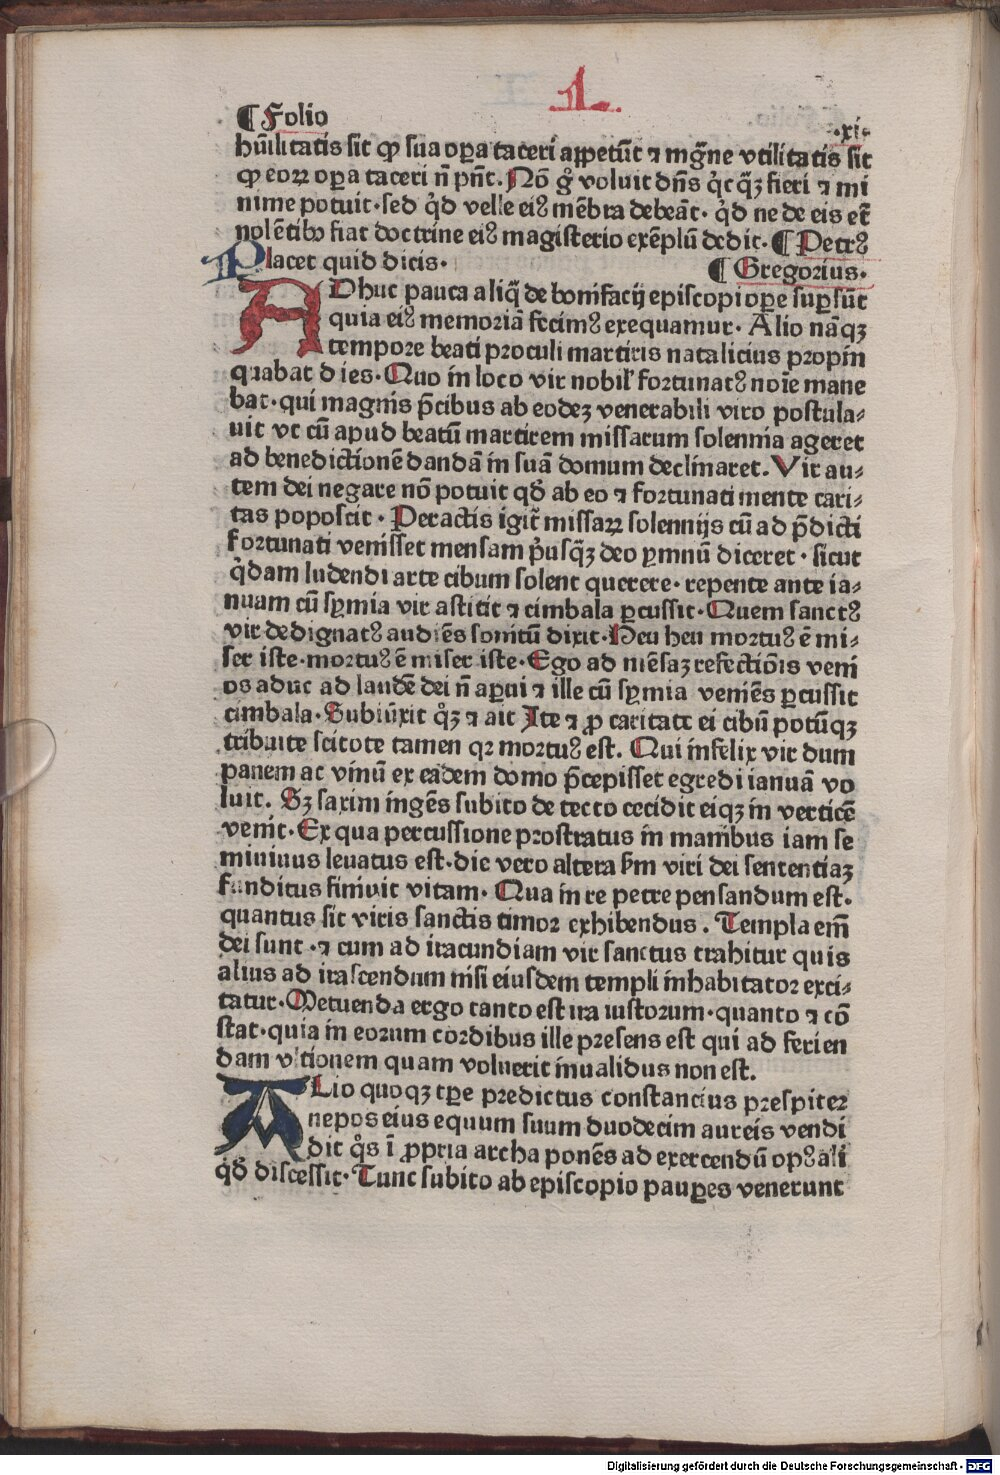 1.
¶ Folio .xi.
hūilitatis sit ꝙ sua oꝑa taceri appetūt ⁊ mgr̄ne vtilitatis sit
ꝙ eoꝝ oꝑa taceri nō pn̄t. Nō gͦ voluit dn̄s qͥc qͣꝫ fieri ⁊ mi
nime potuit·sed qͥd velle eiꝰ mēbra debeāt· qͥd ne de eis etͥ
nolētibꝰ fiat doctrine eiꝰ magisterio exēplū dedit· ¶ Petrꝰ
Placet quid dicis· ¶ Gregorius·
ADhuc pauca aliqͣ de bonifacij episcopi oꝑe suꝑsūt
quia eiꝰ memoriā fecimꝰ exequamur· Alio nāqꝫ
tempore beati proculi martiris natalicius propin
quabat dies· Quo in loco vir nobilꝭ fortunatꝰ noīe mane
bat·qui magnis p̄cibus ab eodeꝫ venerabili viro postula⸗
uit vt cū apud beatū martirem missarum solennia ageret
ad benedictionē dandā in suā domum declinaret. Vir au⸗
tem dei negare nō potuit qd̄ ab eo ⁊ fortunati mente cari⸗
tas poposcit· Peractis igit̄ missaꝝ solennijs cū ad p̄dicti
fortunati venisset mensam pͥusqͣꝫ deo ymnū diceret· sicut
qͥdam ludendi arte cibum solent querere· repente ante ia⸗
nuam cū symia vir astitit ⁊ cimbala ꝑcussit· Quem sanctꝰ
vir dedignatꝰ audiēs sonitū dixit·Heu heu mortuꝰ ē mi⸗
ser iste·mortuꝰ ē miser iste·Ego ad mēsaꝫ refectiōis veni
os aduc ad laudē dei n̄ aꝑui ⁊ ille cū symia veniēs ꝑcussit
cimbala·Subiūxit qͦꝫ ⁊ ait Ite ⁊ ꝓ caritate ei cibū potūqꝫ
tribuite scitote tamen qꝛ mortuꝰ est. Qui infelix vir dum
panem ac vinū ex eadem domo p̄cepisset egredi ianuā vo
luit. Sꝫ saxim ingēs subito de tecto cecidit eiqꝫ in verticē
venit·Ex qua percussione prostratus in manibus iam se
miuiuus leuatus est·die vero altera ẜm viri dei sententiaꝫ
funditus finiuit vitam· Qua in re petre pensandum est·
quantus sit viris sanctis timor exhibendus. Templa em̄
dei sunt·⁊ cum ad iracundiam vir sanctus trahitur quis
alius ad irascendum nisi eiusdem templi inhabitator exci⸗
tatur·Metuenda ergo tanto est ira iustorum·quanto ⁊ cō
stat·quia in eorum cordibus ille presens est qui ad ferien
dam vltionem quam voluerit inualidus non est.
ALio quoqꝫ tꝑe predictus constancius prespiter
nepos eius equum suum duodecim aureis vendi
dit qͦs ī ꝓpria archa ponēs ad exercendū opꝰ ali
qd̄ discessit· Tunc subito ab episcopio pauꝑes venerunt
Digitalisierung gefördert durch die Deutsche Forschungsgemeinschaft · DFG